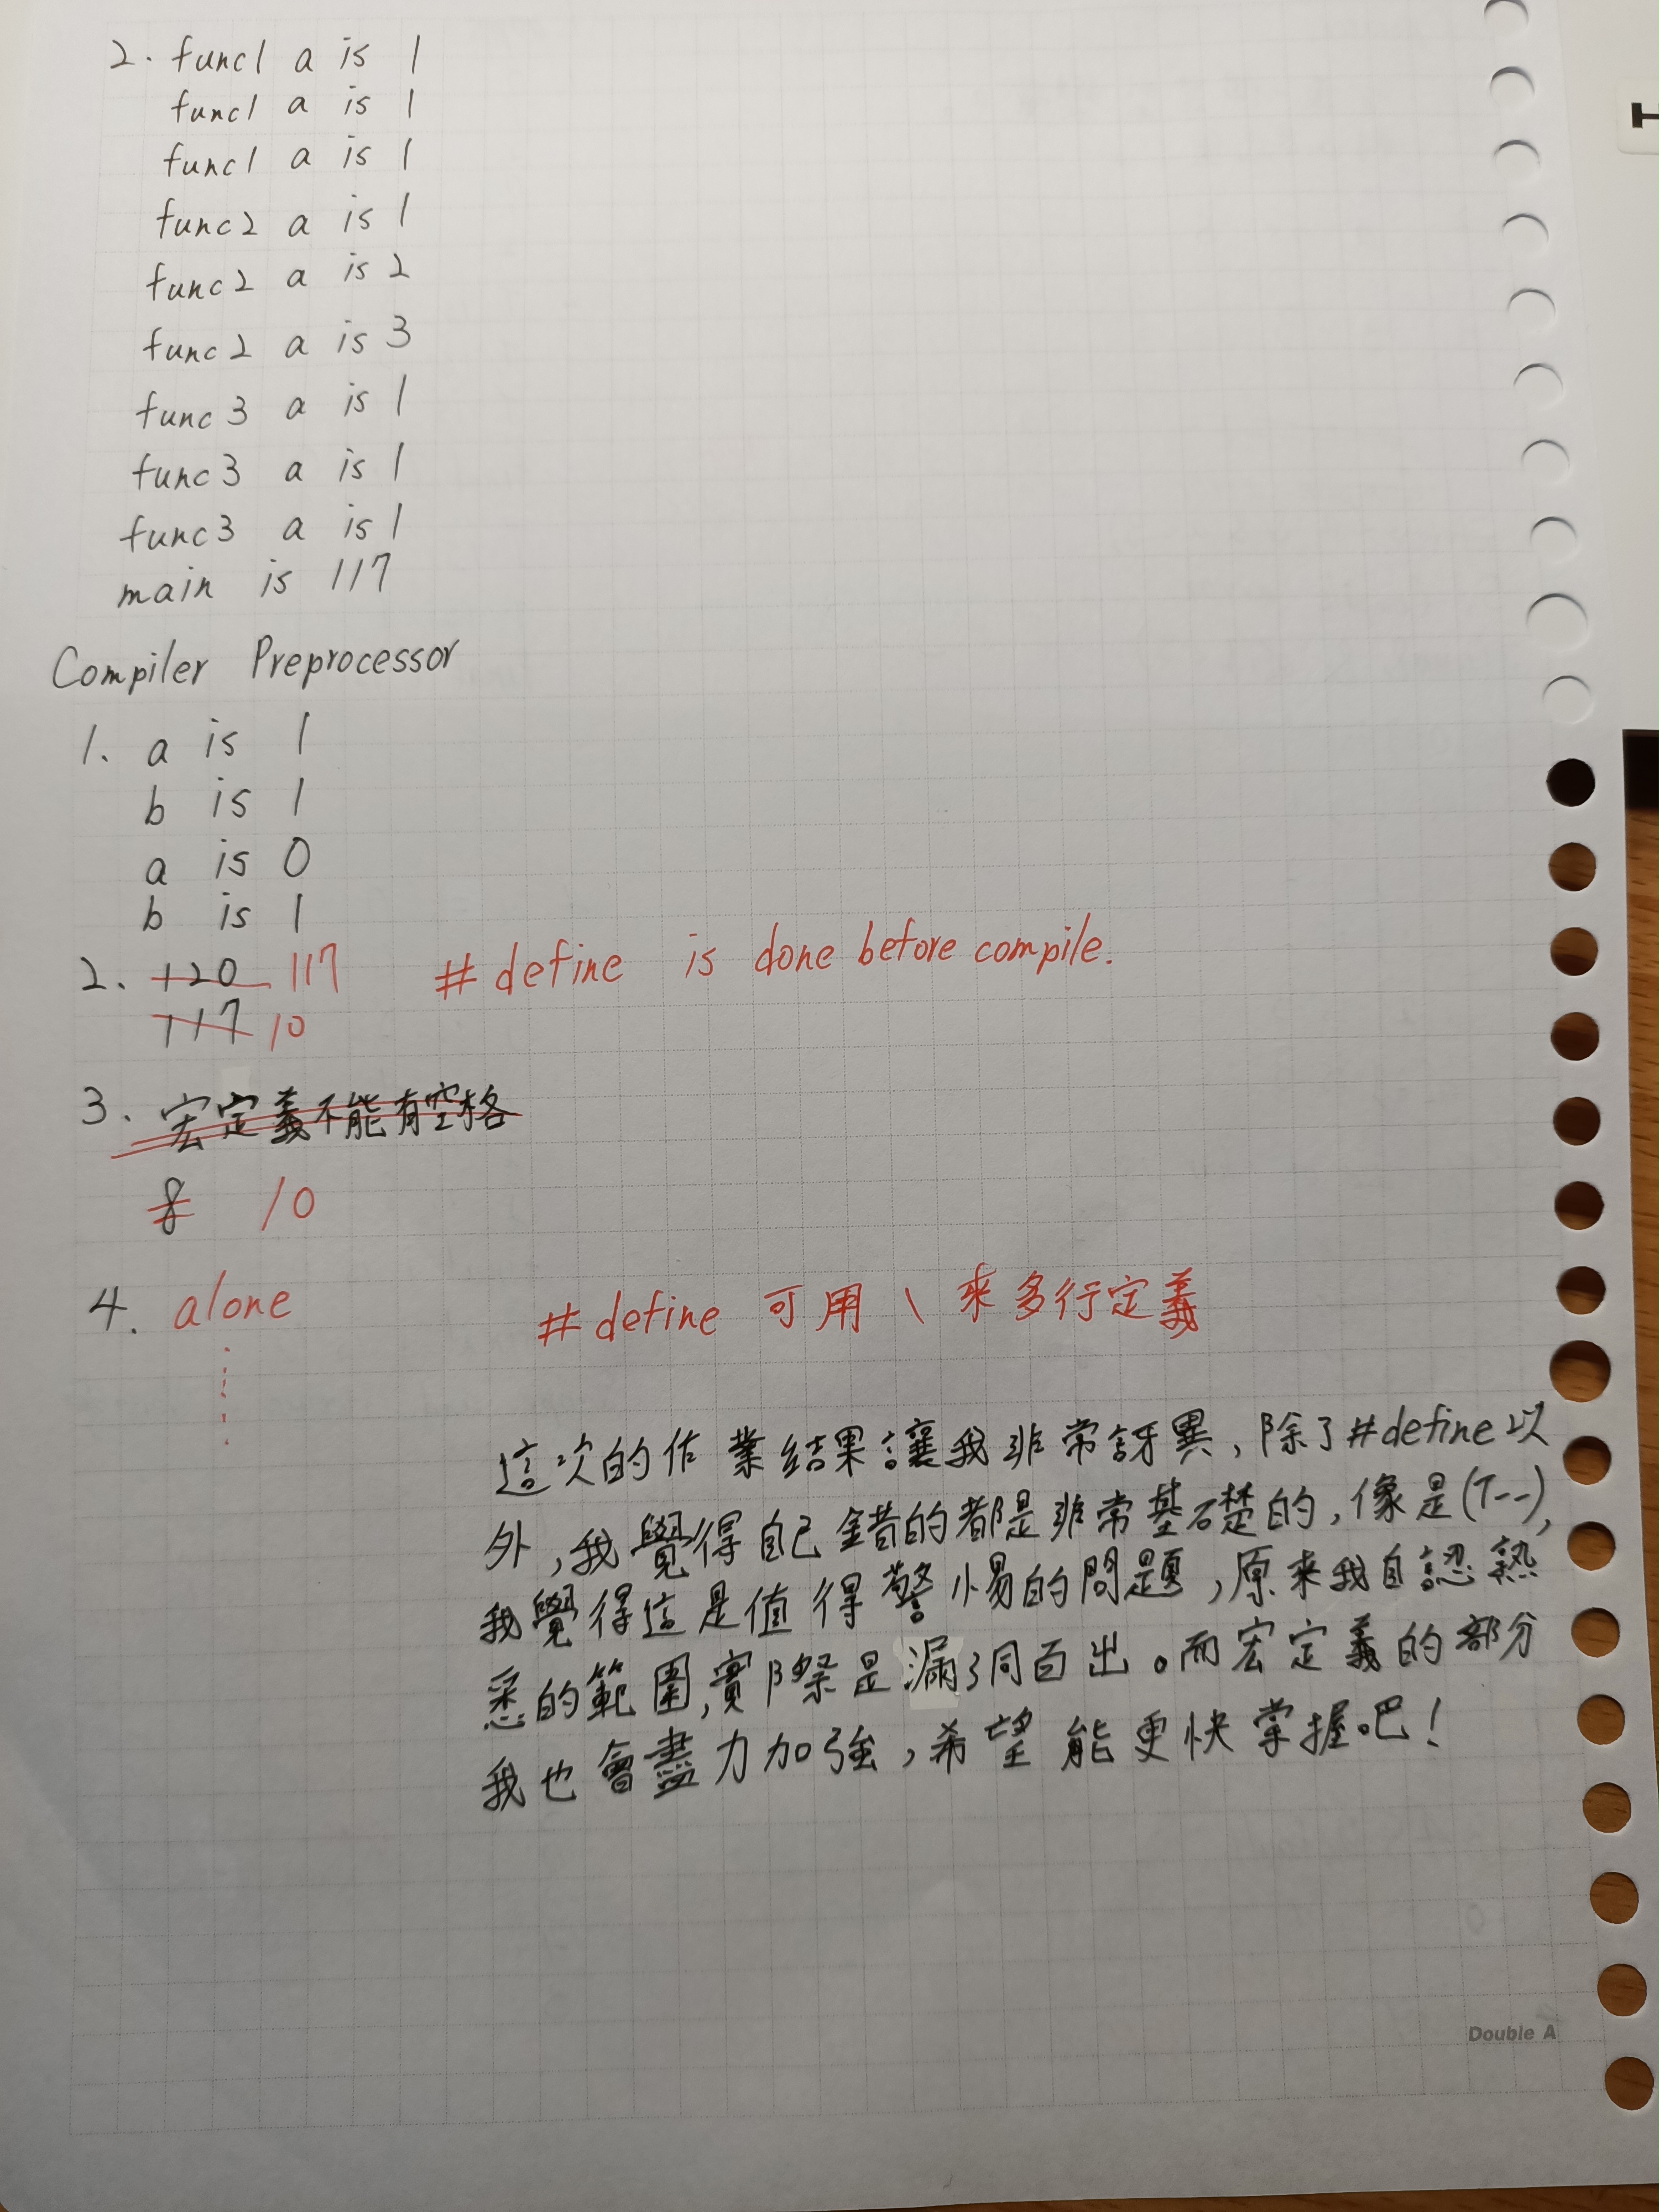 2. func1 a is 1
func1 a is 1
func1 a is 1
func2 a is 1
func2 a is 2
func2 a is 3
func3 a is 1
func3 a is 1
func3 a is 1
main is 117
Compiler Preprocessor
1. a is 1
b is 1
a is 0
b is 1
2. 120 117 #define is done before compile.
117 10
3. 宏定義不能有空格
8 10
4. alone #define 可用 \ 來多行定義
這次的作業結果讓我非常訝異,除了#define以
外,我覺得自己錯的都是非常基礎的,像是(T--),
我覺得這是值得警惕的問題,原來我自認熟
悉的範圍,實際是漏洞百出。而宏定義的部分
我也會盡力加強,希望能更快掌握吧!
Double A